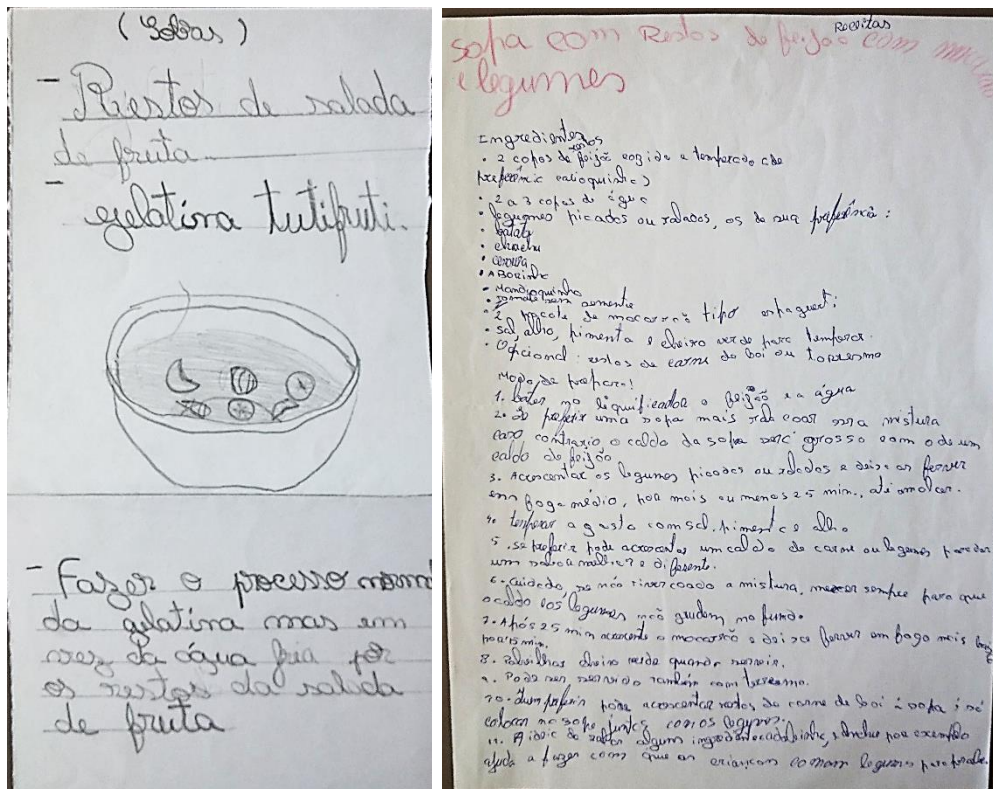 (Sobas)
- Riestos de salada
de fruta
- gelatina tutifruti.
- Fazer o processo norm
da gelatina mas em
vez da água fria por
os restos da salada
de fruta
Receitas
Sopa com Restos de feijão com
e legumes
Ingredientes
restos
• 2 copos de feijão cozido e temperado (de
preferênci carioquinho)
• 2 a 3 copos de água
• legumes picados ou ralados, os de sua preferência:
• batata
• chuchu
• cenoura
• ABobrinha
• Mandioquinha
• tomate sem semente
• macarrão tipo espaguet:
• sal, alho, pimenta e cheiro verde para temperar.
• Opcional: restos de carne de boi ou torresmo
Modo de preparo!
1. bater no liquificador o feijão e a água
2. Se preferir uma sopa mais rala coar essa mistura
caso contrario o caldo da sopa será grosso com o de um
caldo de feijão
3. Acrescentar os legumes picados ou ralados e deixe os ferver
em fogo médio, por mais ou menos 25 min., até amolecer.
4. temperar a gosto com sal, pimenta e alho
5. se preferir pode acrescentar um caldo de carne ou legumes para dar
um sabor e diferente.
6. Cuidado, se não tiver coado a mistura, mexer sempre para que
o caldo e os legumes não grudem no fundo.
7. Após 25 min acrescente o macarrão e deixe ferver em fogo mais
por 15 min.
8. cheiro verde quando servir.
9. Pode ser servido também com torresmo.
10. preferir pode acrescentar restos de carne de boi à sopa é só
colocar na sopa juntos com os legumes.
11. A ideia de ralar algum ingrediente, chuchu por exemplo
ajuda a fazer com que as crianças comam legumes